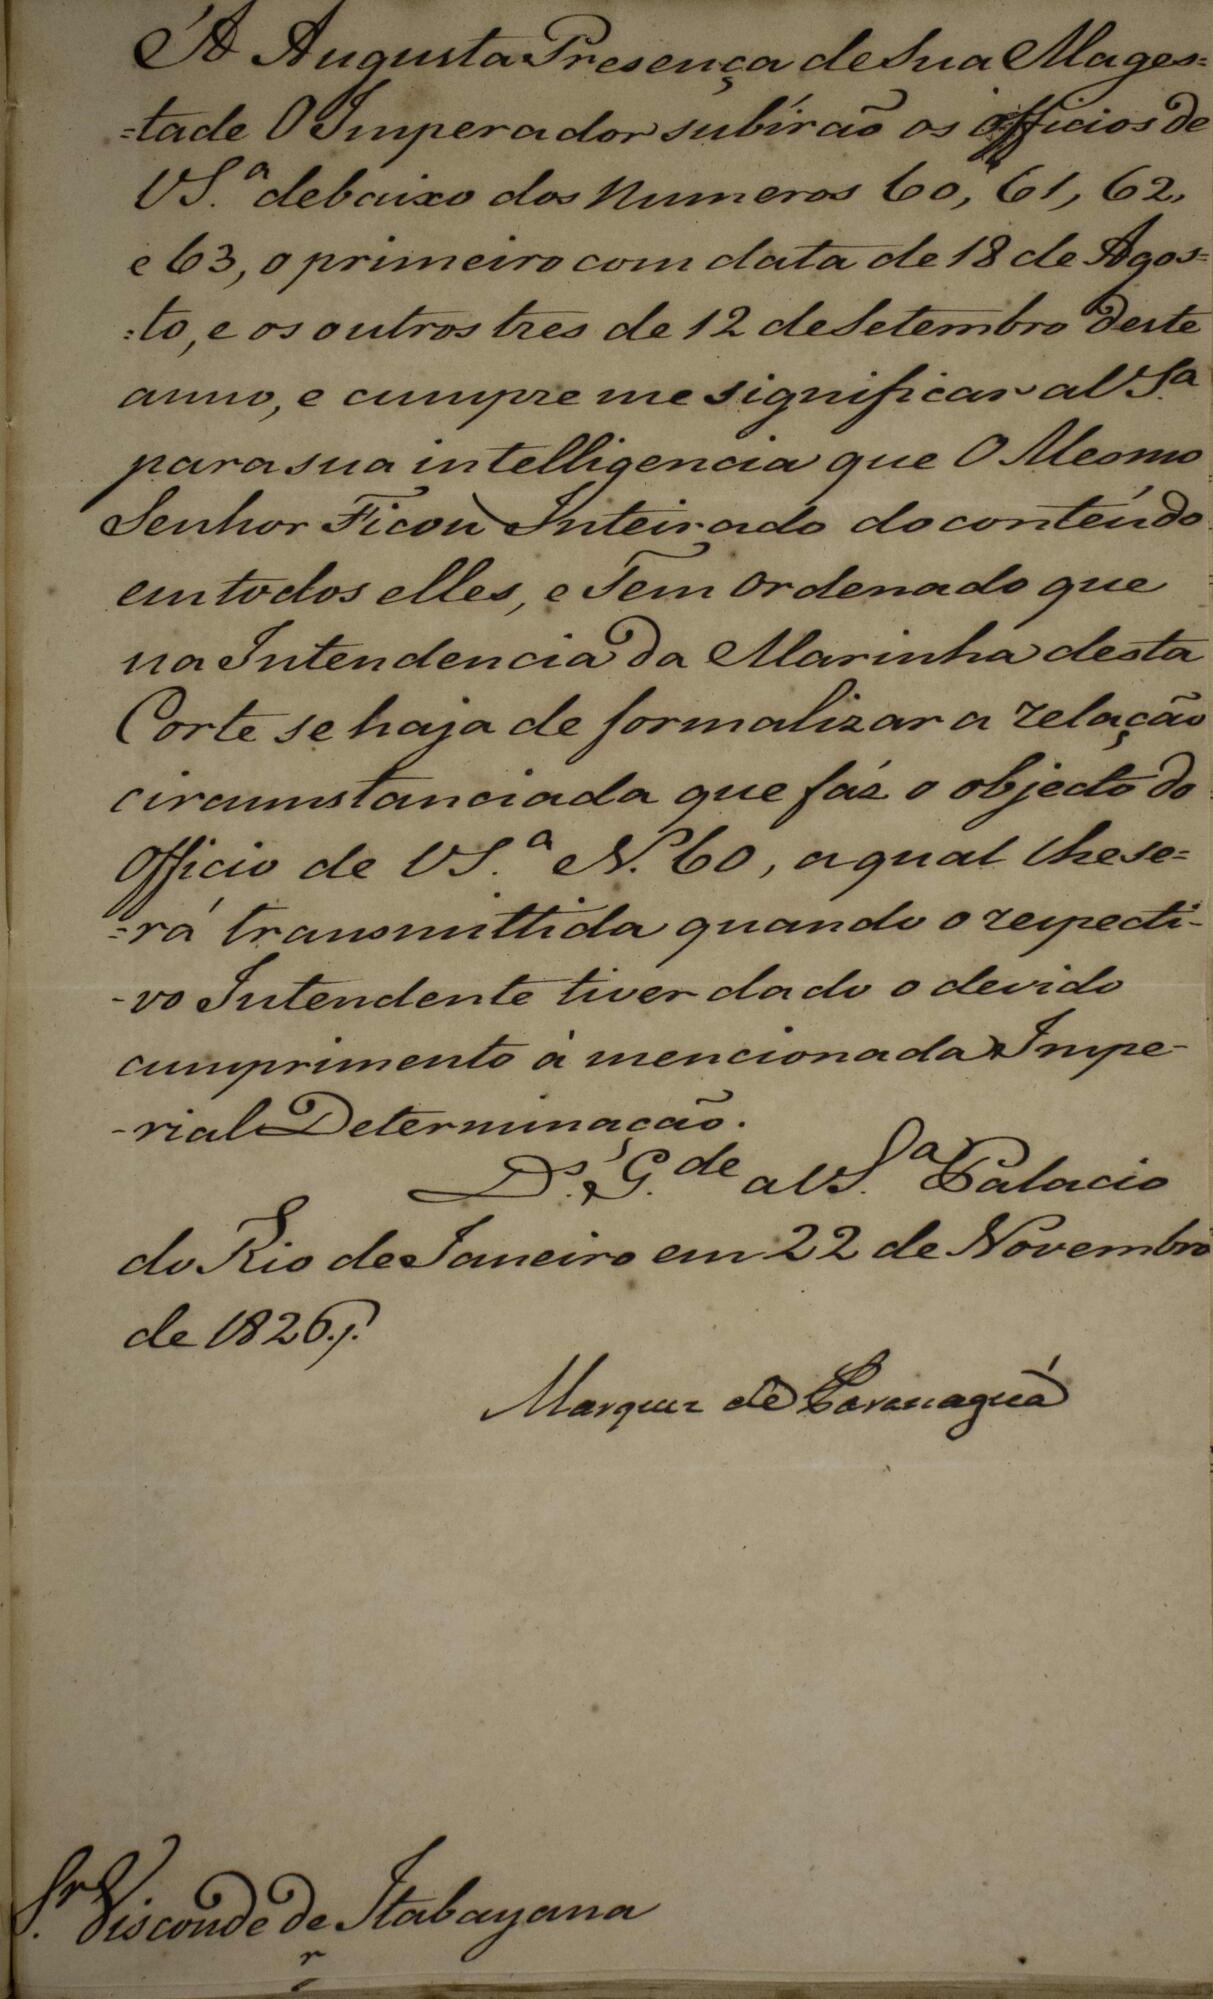 Á Augusta Presença de Sua Mages=
=tade O Imperador subírão os officios de
VS.ª debaixo dos Numeros 60, 61, 62,
e 63, o primeiro com data de 18 de Agos=
=to, e os outros tres de 12 de Setembro deste
anno, e cumpre me significar a VS.ª
para sua intelligencia que O Mesmo
Senhor Ficou Inteirado do conteúdo
em todos elles, e Tem Ordenado que
na Intendencia da Marinha desta
Corte se haja de formalizar a relação
circumstanciada que fáz o objecto do
Officio de VS.ª N. 60, a qual lhe se=
=rá transmittida quando o respecti-
-vo Intendente tiver dado o devido
cumprimento á mencionada Impe-
-rial Determinação.
D.s G.de a VS.ª Palacio
do Rio de Janeiro em 22 de Novembro
de 1826.
Marquez de Paranaguá
Sr. Visconde de Itabayana